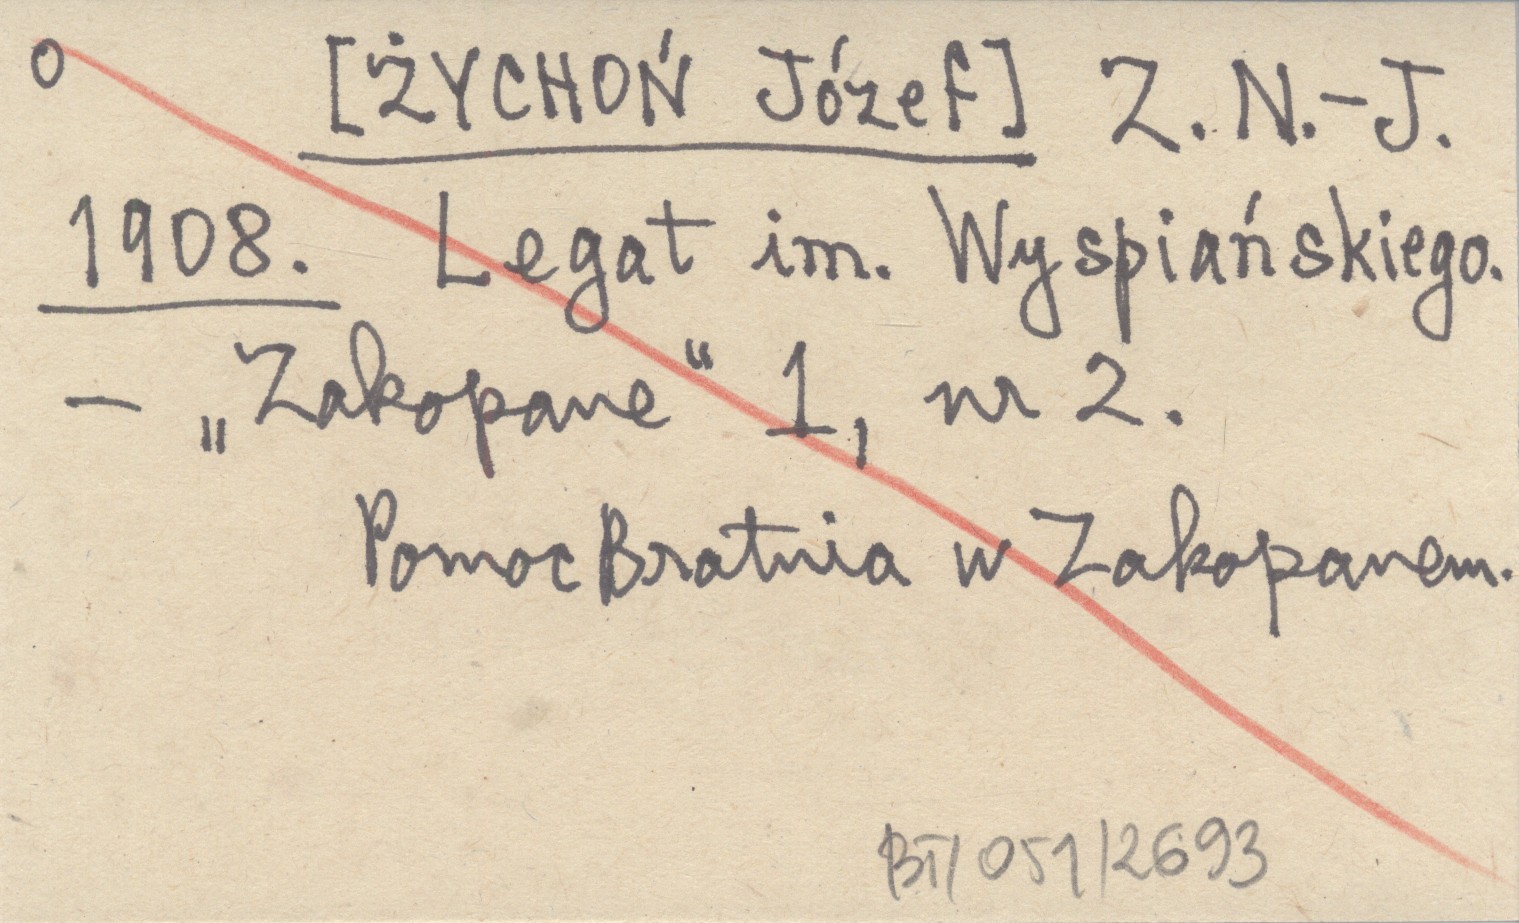 o [ŻYCHOŃ Józef] Z. N.-J.
1908. Legat im. Wyspiańskiego.
– „Zakopane“ 1, nr 2.
Pomoc Bratnia w Zakopanem.
BT/051/2693